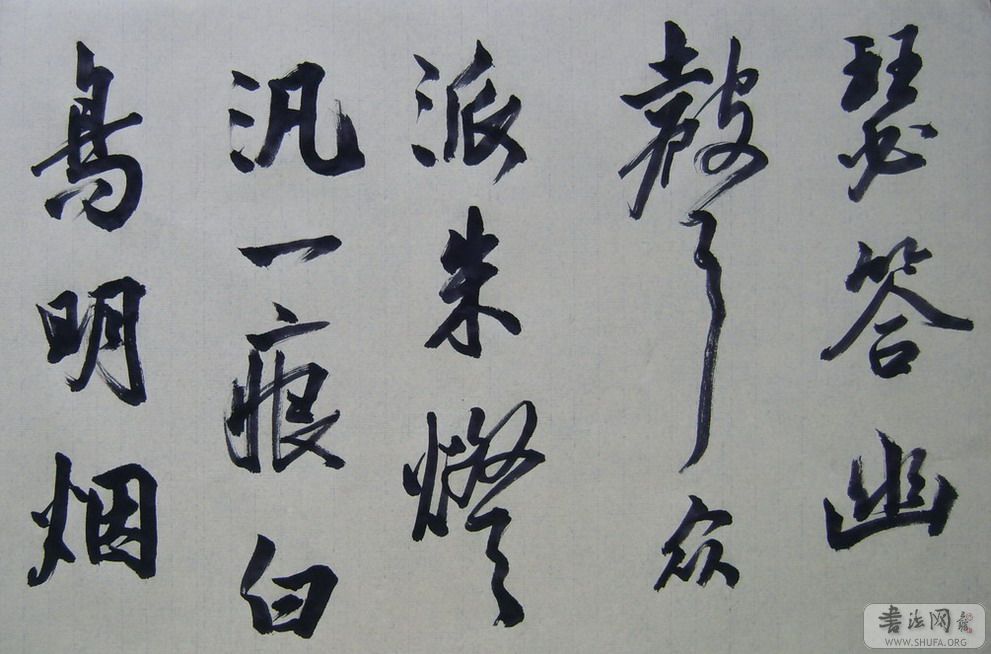 瑟答幽
聲众
派朱燈
汎一痕白
鳥明烟
書法网
WWW.SHUFA.ORG